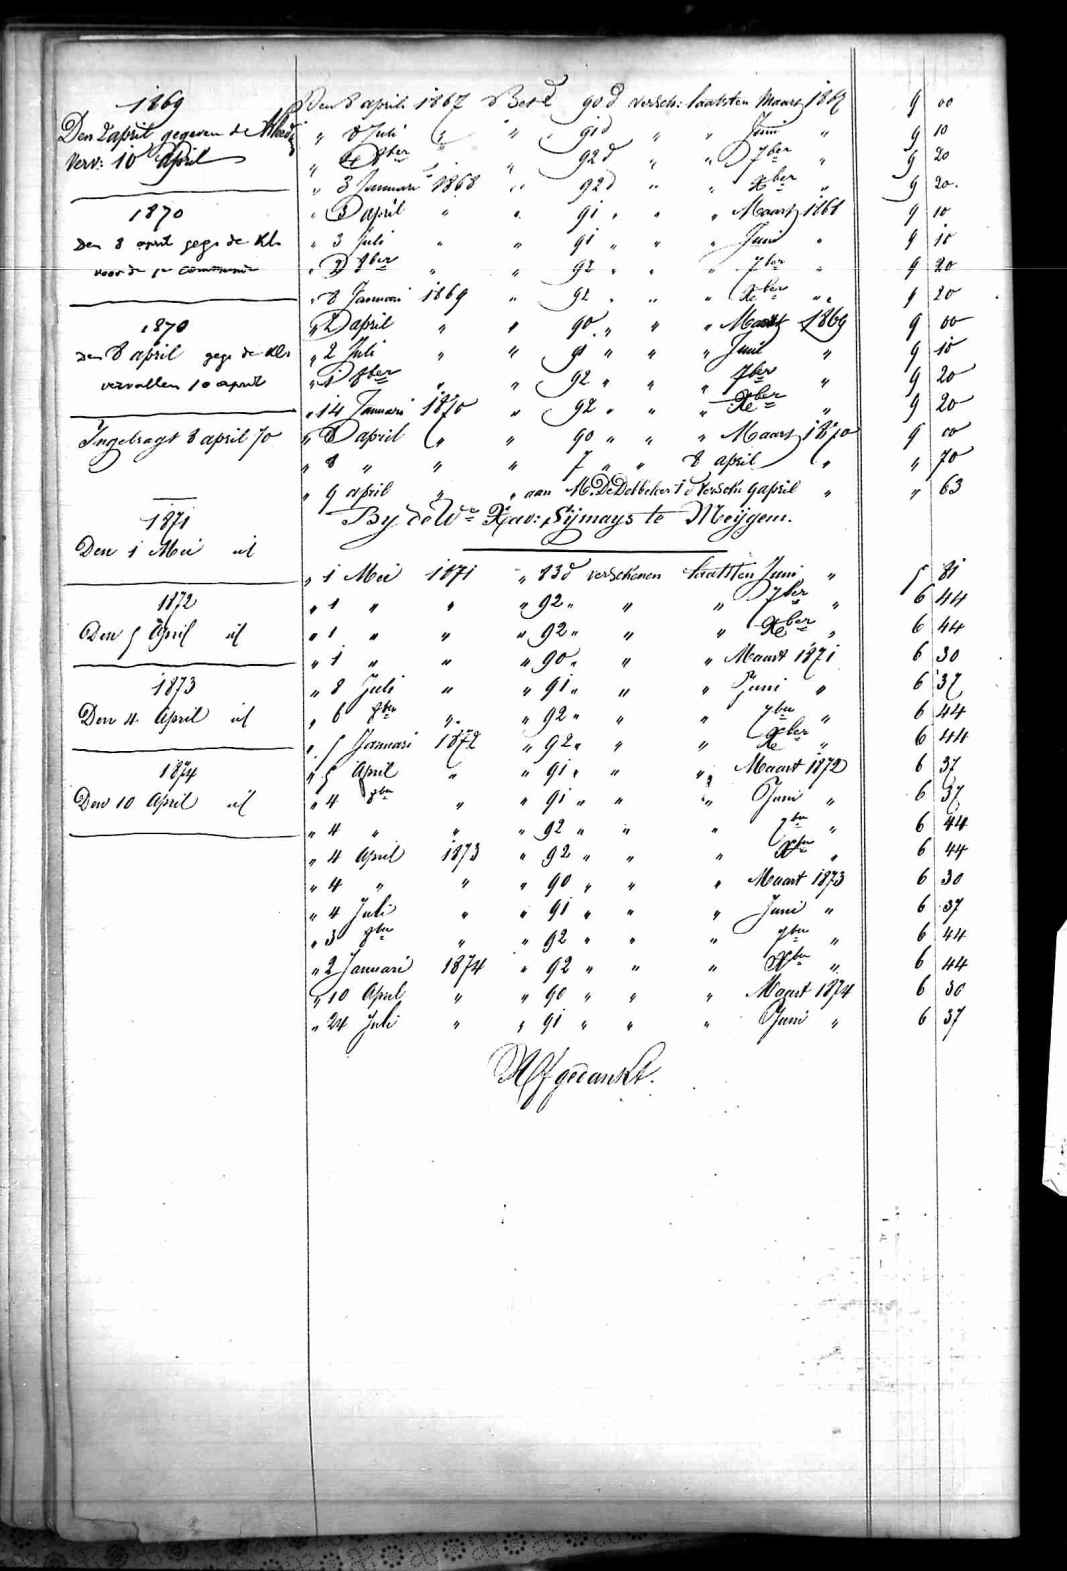 1869
Den 2 april gegeven de Kleedij
Verv: 10 April
1870
Den 8 april gege de Kl.
voor de 1e communie
1870
den 8 april gege de Kl.
vervallen 10 april
Ingebragt 8 april 70
1871
Den 1 Mei id
1872
Den 5 April id
1873
Den 4 April id
1874
Den 10 April id
Den 8 april 1867 Bet. 90 d versch: laatsten Maart 1867 9 00
" 8 Juli " " 91 d " " Juni " 9 10
" 8ber " " 92 d " " 7ber " 9 20
" 3 Januari 1868 " 92 d " " Xber " 9 20
" 3 april " " 91 " " Maart 1868 9 10
" 3 Juli " " 91 " " Juni " 9 10
" 8ber " " 92 " " 7ber " 9 20
" 8 Januari 1869 " 92 " " Xber " 9 20
" 2 april " " 90 " " Maart 1869 9 00
" 2 Juli " " 91 " " Juni " 9 10
" 1 8ber " " 92 " " 7ber " 9 20
" 14 Januari 1870 " 92 " " Xber " 9 20
" 8 april " " 90 " " Maart 1870 9 00
" 8 " " " 7 " " 8 april " " 70
" 9 april " " aan M. De Debbeker 1 d versch 9 april " " 63
By de We Xav: Sijmays te Meijgem.
" 1 Mei 1871 " 83 d verschenen laatsten Juni " 5 81
" 1 " " " 92 " " " 7ber " 6 44
" 1 " " " 92 " " " Xber " 6 44
" 1 " " " 90 " " " Maart 1871 6 30
" 8 Juli " " 91 " " " Juni " 6 37
" 6 8ber " " 92 " " " 7ber " 6 44
" 5 Januari 1872 " 92 " " " Xber " 6 44
" 5 April " " 91 " " " Maart 1872 6 37
" 4 8ber " " 91 " " " Juni " 6 37
" 4 " " " 92 " " " 7ber " 6 44
" 4 April 1873 " 92 " " " Xber " 6 44
" 4 " " " 90 " " " Maart 1873 6 30
" 4 Juli " " 91 " " " Juni " 6 37
" 3 8ber " " 92 " " " 7ber " 6 44
" 2 Januari 1874 " 92 " " " Xber " 6 44
" 10 April " " 90 " " " Maart 1874 6 30
" 24 Juli " " 91 " " " Juni " 6 37
Afgedankt.